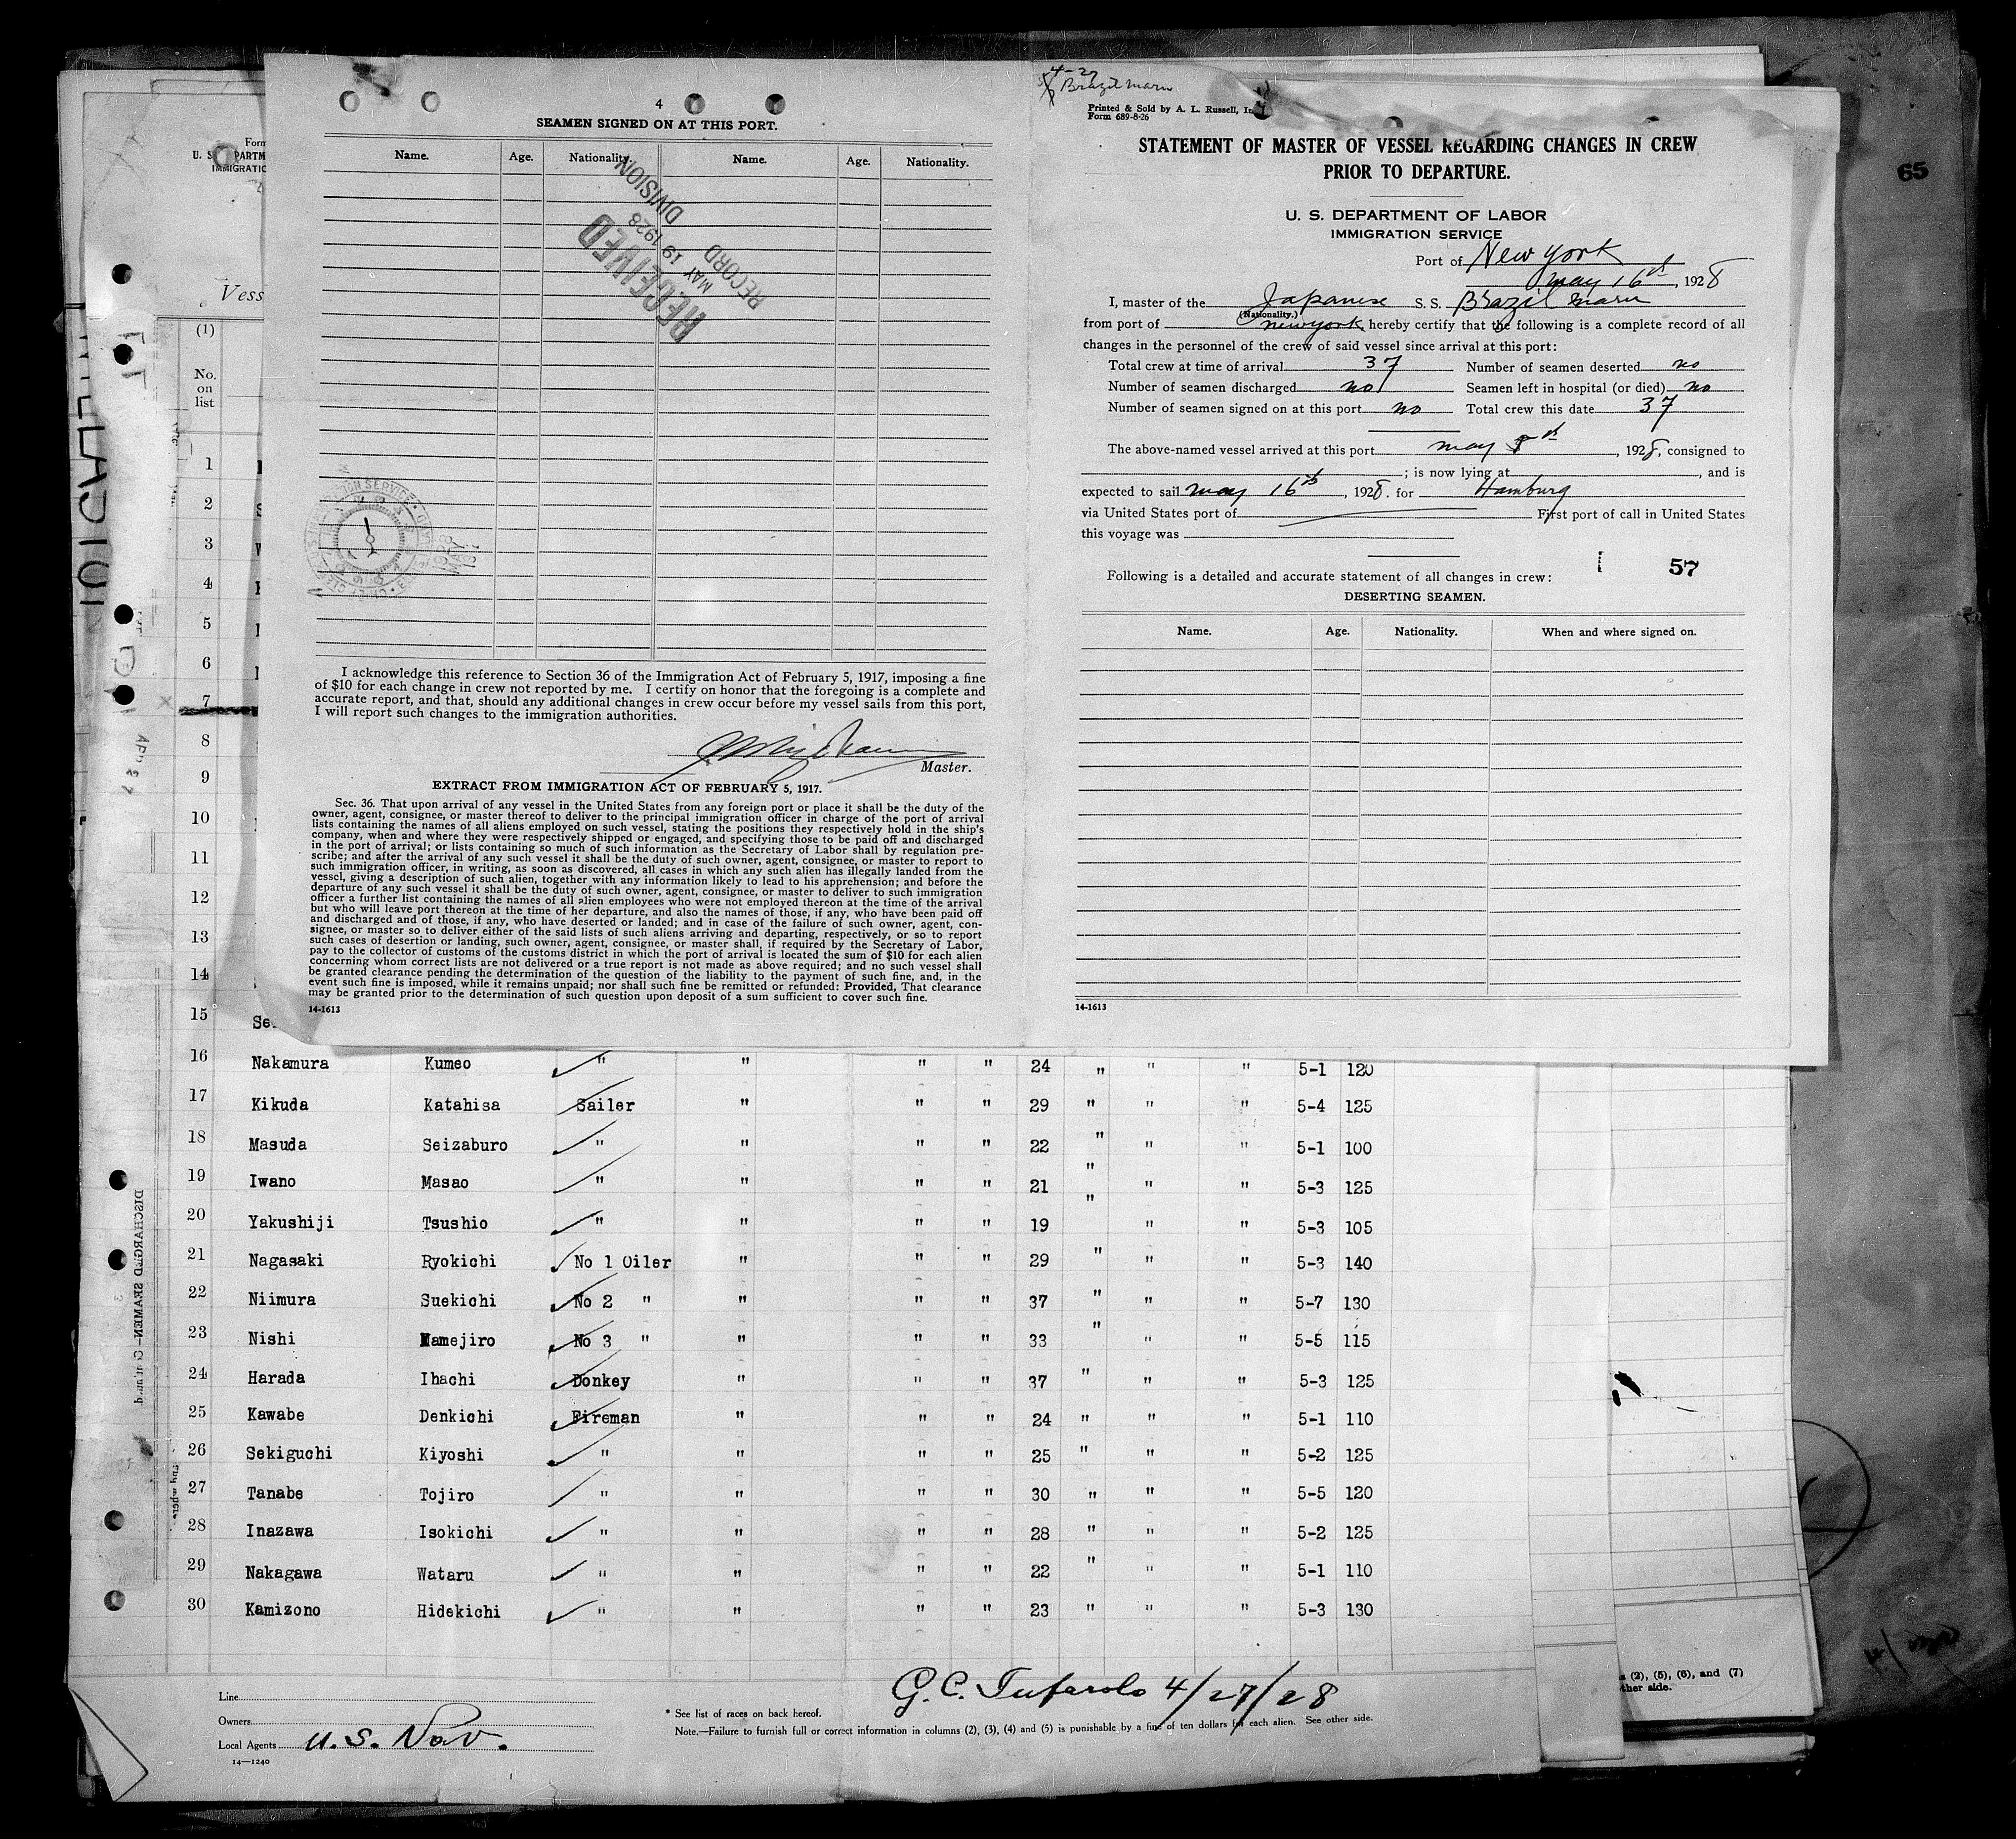 4
SEAMEN SIGNED ON AT THIS PORT.
Name. Age. Nationality. Name. Age. Nationality.
RECEIVED
MAY 19 1928
RECORD
DIVISION
I acknowledge this reference to Section 36 of the Immigration Act of February 5, 1917, imposing a fine
of $10 for each change in crew not reported by me. I certify on honor that the foregoing is a complete and
accurate report, and that, should any additional changes in crew occur before my vessel sails from this port,
I will report such changes to the immigration authorities.
Master.
EXTRACT FROM IMMIGRATION ACT OF FEBRUARY 5, 1917.
Sec. 36. That upon arrival of any vessel in the United States from any foreign port or place it shall be the duty of the
owner, agent, consignee, or master thereof to deliver to the principal immigration officer in charge of the port of arrival
lists containing the names of all aliens employed on such vessel, stating the positions they respectively hold in the ship's
company, when and where they were respectively shipped or engaged, and specifying those to be paid off and discharged
in the port of arrival; or lists containing so much of such information as the Secretary of Labor shall by regulation pre-
scribe; and after the arrival of any such vessel it shall be the duty of such owner, agent, consignee, or master to report to
such immigration officer, in writing, as soon as discovered, all cases in which any such alien has illegally landed from the
vessel, giving a description of such alien, together with any information likely to lead to his apprehension; and before the
departure of any such vessel it shall be the duty of such owner, agent, consignee, or master to deliver to such immigration
officer a further list containing the names of all alien employees who were not employed thereon at the time of the arrival
but who will leave port thereon at the time of her departure, and also the names of those, if any, who have been paid off
and discharged and of those, if any, who have deserted or landed; and in case of the failure of such owner, agent, con-
signee, or master so to deliver either of the said lists of such aliens arriving and departing, respectively, or so to report
such cases of desertion or landing, such owner, agent, consignee, or master shall, if required by the Secretary of Labor,
pay to the collector of customs of the customs district in which the port of arrival is located the sum of $10 for each alien
concerning whom correct lists are not delivered or a true report is not made as above required; and no such vessel shall
be granted clearance pending the determination of the question of the liability to the payment of such fine, and, in the
event such fine is imposed, while it remains unpaid; nor shall such fine be remitted or refunded: Provided, That clearance
may be granted prior to the determination of such question upon deposit of a sum sufficient to cover such fine.
14-1613
4-27
Brazil Maru
Printed & Sold by A. L. Russell, In
Form 689-8-26
STATEMENT OF MASTER OF VESSEL REGARDING CHANGES IN CREW
PRIOR TO DEPARTURE.
U. S. DEPARTMENT OF LABOR
IMMIGRATION SERVICE
Port of New York
May 16th, 1928
I, master of the Japanese S. S. Brazil Maru
(Nationality.)
from port of New York, hereby certify that the following is a complete record of all
changes in the personnel of the crew of said vessel since arrival at this port:
Total crew at time of arrival 37 Number of seamen deserted no
Number of seamen discharged no Seamen left in hospital (or died) no
Number of seamen signed on at this port no Total crew this date 37
The above-named vessel arrived at this port May 8th, 1928, consigned to
; is now lying at , and is
expected to sail May 16th, 1928. for Hamburg
via United States port of First port of call in United States
this voyage was
57
Following is a detailed and accurate statement of all changes in crew:
DESERTING SEAMEN.
Name. Age. Nationality. When and where signed on.
14-1613
65
Form
U. S. DEPARTM
IMMIGRATIO
Vess
(1)
No.
on
list
1
2
3
4
5
6
7
8
9
10
11
12
13
14
15 Se
16 Nakamura Kumeo " " " " 24 " " " 5-1 120
17 Kikuda Katahisa Sailer " " " 29 " " " 5-4 125
18 Masuda Seizaburo " " " " 22 " " " 5-1 100
19 Iwano Masao " " " " 21 " " " 5-3 125
20 Yakushiji Tsushio " " " " 19 " " " 5-3 105
21 Nagasaki Ryokichi No 1 Oiler " " " 29 " " " 5-3 140
22 Niimura Suekichi No 2 " " " " 37 " " " 5-7 130
23 Nishi Mamejiro No 3 " " " " 33 " " " 5-5 115
24 Harada Ihachi Donkey " " " 37 " " " 5-3 125
25 Kawabe Denkichi Fireman " " " 24 " " " 5-1 110
26 Sekiguchi Kiyoshi " " " " 25 " " " 5-2 125
27 Tanabe Tojiro " " " " 30 " " " 5-5 120
28 Inazawa Isokichi " " " " 28 " " " 5-2 125
29 Nakagawa Wataru " " " " 22 " " " 5-1 110
30 Kamizono Hidekichi " " " " 23 " " " 5-3 130
G.C. Tufarolo 4/27/28
Line
Owners
Local Agents U.S. Nav.
14—1240
* See list of races on back hereof.
Note.—Failure to furnish full or correct information in columns (2), (3), (4) and (5) is punishable by a fine of ten dollars for each alien. See other side.
s (2), (5), (6), and (7)
ther side.
DISCHARGED SEAMEN—Continued.